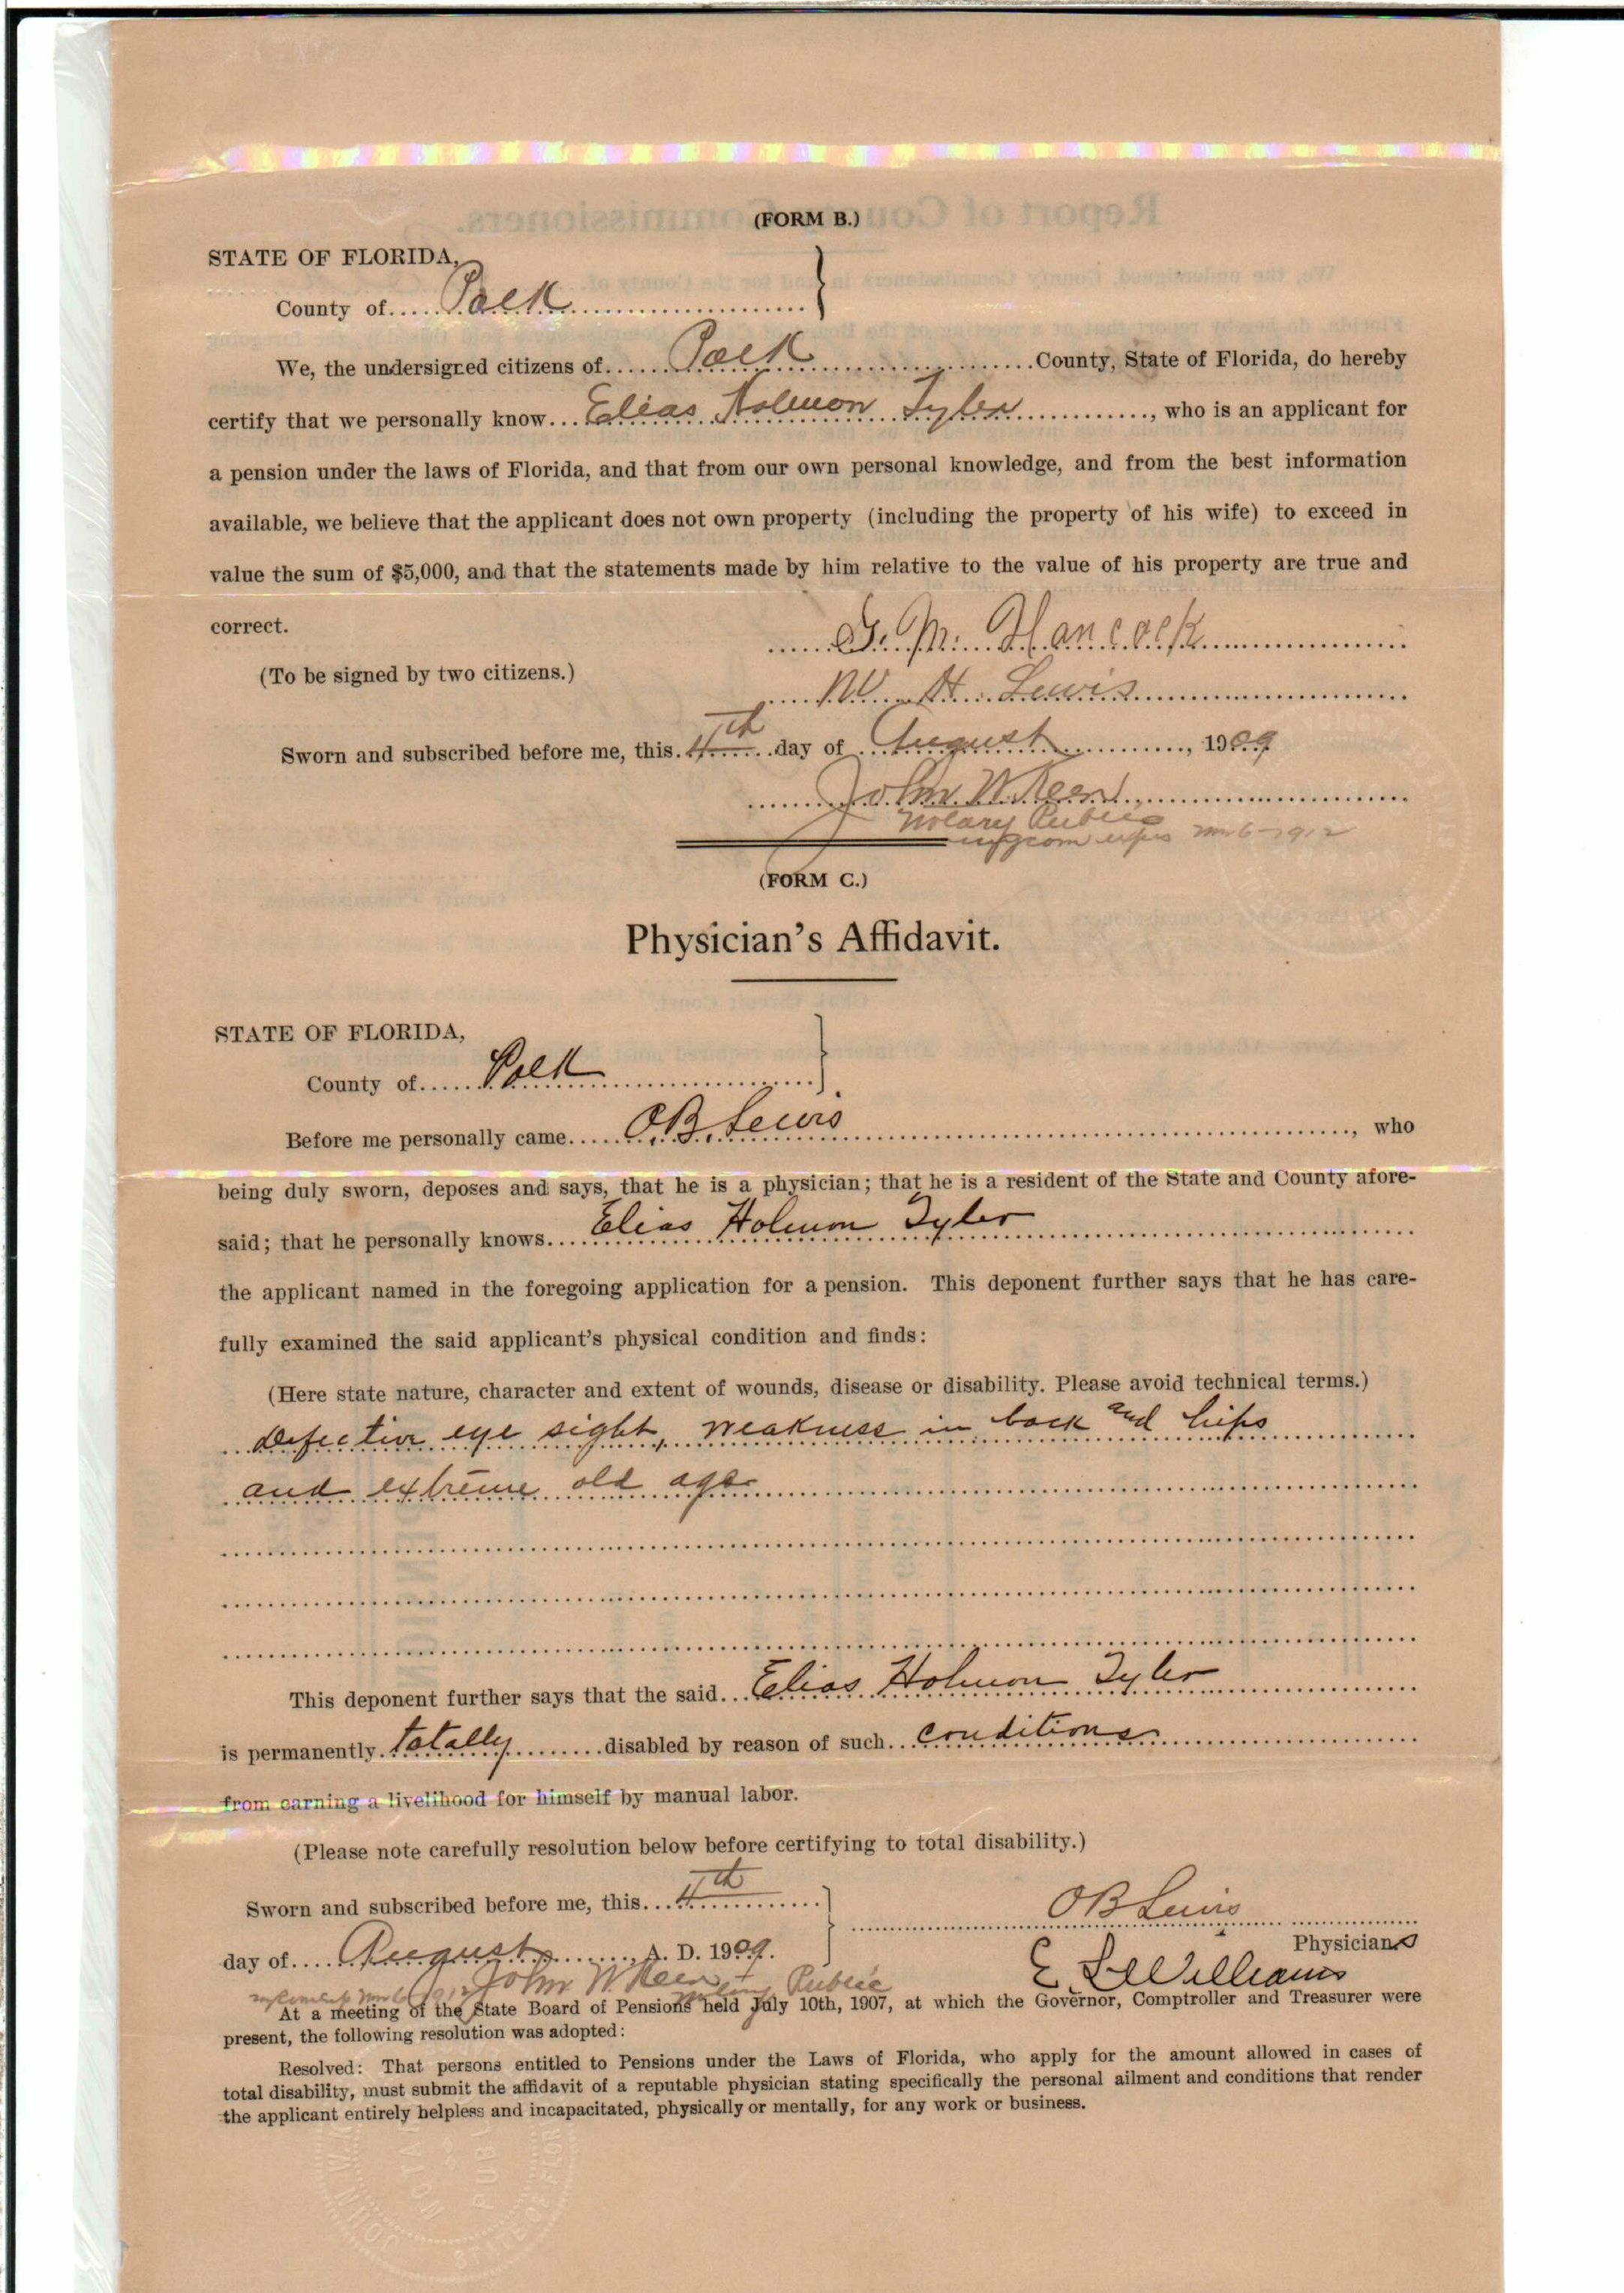 (FORM B.)
STATE OF FLORIDA,
County of Polk
We, the undersigned citizens of Polk County, State of Florida, do hereby
certify that we personally know Elias Holmon Tyler, who is an applicant for
a pension under the laws of Florida, and that from our own personal knowledge, and from the best information
available, we believe that the applicant does not own property (including the property of his wife) to exceed in
value the sum of $5,000, and that the statements made by him relative to the value of his property are true and
correct.
G. M. Hancock
(To be signed by two citizens.)
W. H. Lewis
Sworn and subscribed before me, this 4th day of August, 1909
John W. Keen
Notary Public
my com expires 6-1912
(FORM C.)
Physician's Affidavit.
STATE OF FLORIDA,
County of Polk
Before me personally came O.B. Lewis, who
being duly sworn, deposes and says, that he is a physician; that he is a resident of the State and County afore-
said; that he personally knows Elias Holmon Tyler
the applicant named in the foregoing application for a pension. This deponent further says that he has care-
fully examined the said applicant's physical condition and finds:
(Here state nature, character and extent of wounds, disease or disability. Please avoid technical terms.)
Defective eye sight, weakness in back and hips
and extreme old age
This deponent further says that the said Elias Holmon Tyler
is permanently totally disabled by reason of such conditions
from earning a livelihood for himself by manual labor.
(Please note carefully resolution below before certifying to total disability.)
Sworn and subscribed before me, this 4th
O B Lewis
day of August, A. D. 1909.
Physicians
E L Williams
John W. Keen Notary Public
At a meeting of the State Board of Pensions held July 10th, 1907, at which the Governor, Comptroller and Treasurer were
present, the following resolution was adopted:
Resolved: That persons entitled to Pensions under the Laws of Florida, who apply for the amount allowed in cases of
total disability, must submit the affidavit of a reputable physician stating specifically the personal ailment and conditions that render
the applicant entirely helpless and incapacitated, physically or mentally, for any work or business.